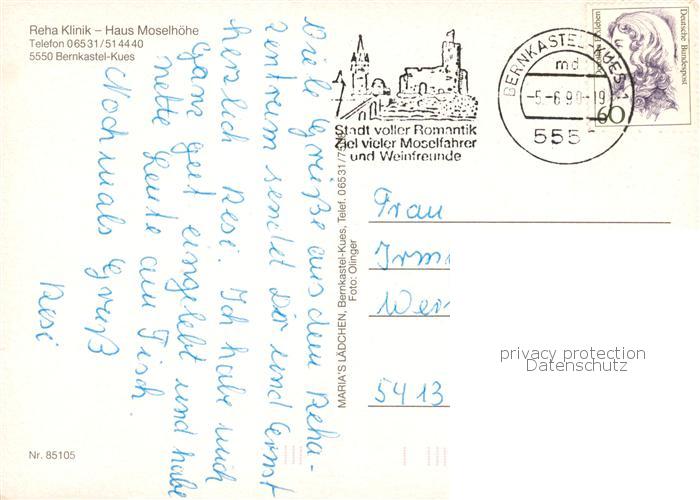 Reha Klinik – Haus Moselhöhe
Telefon 06531/514440
5550 Bernkastel-Kues
Viele Grüße aus dem Reha-
zentrum sendet Dir und Ernst
herzlich Resi. Ich habe mich
ganz gut eingelebt und habe
nette Leute am Tisch.
Nochmals Gruß
Resi
Nr. 85105
MARIA'S LÄDCHEN, Bernkastel-Kues, Telef. 06531/75
Foto: Olinger
Stadt voller Romantik
Ziel vieler Moselfahrer
und Weinfreunde
BERNKASTEL-KUES 1
md
-5.-6.90-19
555
Deutsche Bundespost
60
Frau
Irm
Wer
5413
privacy protection
Datenschutz